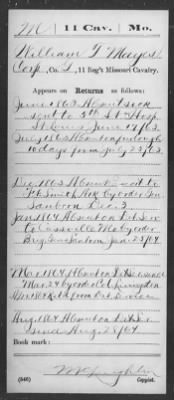 M | 11 Cav. | Mo.
William T. Mayes
Corp., Co. I, 11 Reg't Missouri Cavalry.
Appears on Returns as follows:
June 1863 Absent sick
sent to Hosp
St Louis June 17/63
July 1863 Absent on furlough
10 days from July 23/63
Dec. 1863 Absent sent to
Ft. Smith Ark by order Gen
Sanborn Dec. 3
Jan 1864 Absent on Det. Ser.
to Cassville Mo by order
Brig. Gen. Sanborn Jan 25/64
Mar 1864 Absent on Det. Ser. since
Mar 24 by order Col. Livingston
Apr 1864 Retd from Det. Service
Aug. 1864 Absent on Det. Ser.
since Aug 28/64
Book mark:
(546)
Copyist.